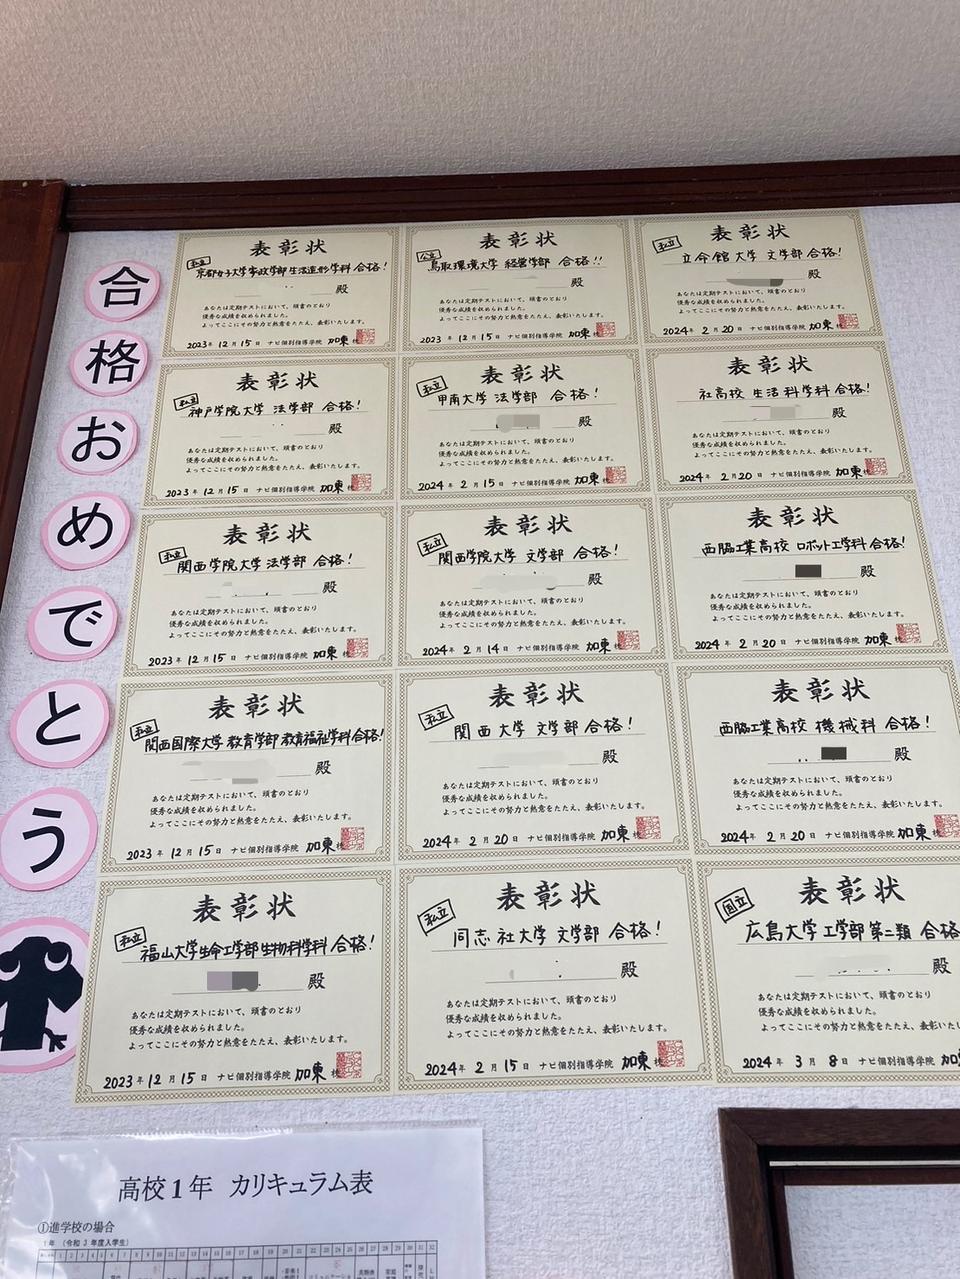 合
格
お
め
で
と
う
表彰状
私立
京都女子大学家政学部生活造形学科 合格!
殿
あなたは定期テストにおいて、頭書のとおり
優秀な成績を収められました。
よってここにその努力と熱意をたたえ、表彰いたします。
2023年 12月 15日 ナビ個別指導学院 加東校
表彰状
公立
鳥取環境大学 経営学部 合格!!
殿
あなたは定期テストにおいて、頭書のとおり
優秀な成績を収められました。
よってここにその努力と熱意をたたえ、表彰いたします。
2023年 12月 15日 ナビ個別指導学院 加東校
表彰状
私立
立命館大学 文学部 合格!
殿
あなたは定期テストにおいて、頭書のとおり
優秀な成績を収められました。
よってここにその努力と熱意をたたえ、表彰いたします。
2024年 2月 20日 ナビ個別指導学院 加東校
表彰状
私立
神戸学院大学 法学部 合格!
殿
あなたは定期テストにおいて、頭書のとおり
優秀な成績を収められました。
よってここにその努力と熱意をたたえ、表彰いたします。
2023年 12月 15日 ナビ個別指導学院 加東校
表彰状
私立
甲南大学 法学部 合格!
殿
あなたは定期テストにおいて、頭書のとおり
優秀な成績を収められました。
よってここにその努力と熱意をたたえ、表彰いたします。
2024年 2月 15日 ナビ個別指導学院 加東校
表彰状
社高校 生活科学科 合格!
殿
あなたは定期テストにおいて、頭書のとおり
優秀な成績を収められました。
よってここにその努力と熱意をたたえ、表彰いたします。
2024年 2月 20日 ナビ個別指導学院 加東校
表彰状
私立
関西学院大学 法学部 合格!
殿
あなたは定期テストにおいて、頭書のとおり
優秀な成績を収められました。
よってここにその努力と熱意をたたえ、表彰いたします。
2023年 12月 15日 ナビ個別指導学院 加東校
表彰状
私立
関西学院大学 文学部 合格!
殿
あなたは定期テストにおいて、頭書のとおり
優秀な成績を収められました。
よってここにその努力と熱意をたたえ、表彰いたします。
2024年 2月 14日 ナビ個別指導学院 加東校
表彰状
西脇工業高校 ロボット工学科 合格!
殿
あなたは定期テストにおいて、頭書のとおり
優秀な成績を収められました。
よってここにその努力と熱意をたたえ、表彰いたします。
2024年 2月 20日 ナビ個別指導学院 加東校
表彰状
私立
関西国際大学 教育学部 教育福祉学科 合格!
殿
あなたは定期テストにおいて、頭書のとおり
優秀な成績を収められました。
よってここにその努力と熱意をたたえ、表彰いたします。
2023年 12月 15日 ナビ個別指導学院 加東校
表彰状
私立
関西大学 文学部 合格!
殿
あなたは定期テストにおいて、頭書のとおり
優秀な成績を収められました。
よってここにその努力と熱意をたたえ、表彰いたします。
2024年 2月 20日 ナビ個別指導学院 加東校
表彰状
西脇工業高校 機械科 合格!
殿
あなたは定期テストにおいて、頭書のとおり
優秀な成績を収められました。
よってここにその努力と熱意をたたえ、表彰いたします。
2024年 2月 20日 ナビ個別指導学院 加東校
表彰状
私立
福山大学生命工学部生物科学科 合格!
殿
あなたは定期テストにおいて、頭書のとおり
優秀な成績を収められました。
よってここにその努力と熱意をたたえ、表彰いたします。
2023年 12月 15日 ナビ個別指導学院 加東校
表彰状
私立
同志社大学 文学部 合格!
殿
あなたは定期テストにおいて、頭書のとおり
優秀な成績を収められました。
よってここにその努力と熱意をたたえ、表彰いたします。
2024年 2月 15日 ナビ個別指導学院 加東校
表彰状
国立
広島大学工学部第二類 合格
殿
あなたは定期テストにおいて、頭書のとおり
優秀な成績を収められました。
よってここにその努力と熱意をたたえ、表彰いたし
2024年 3月 8日 ナビ個別指導学院 加
高校1年 カリキュラム表
①進学校の場合
1年 (令和 3 年度入学生)